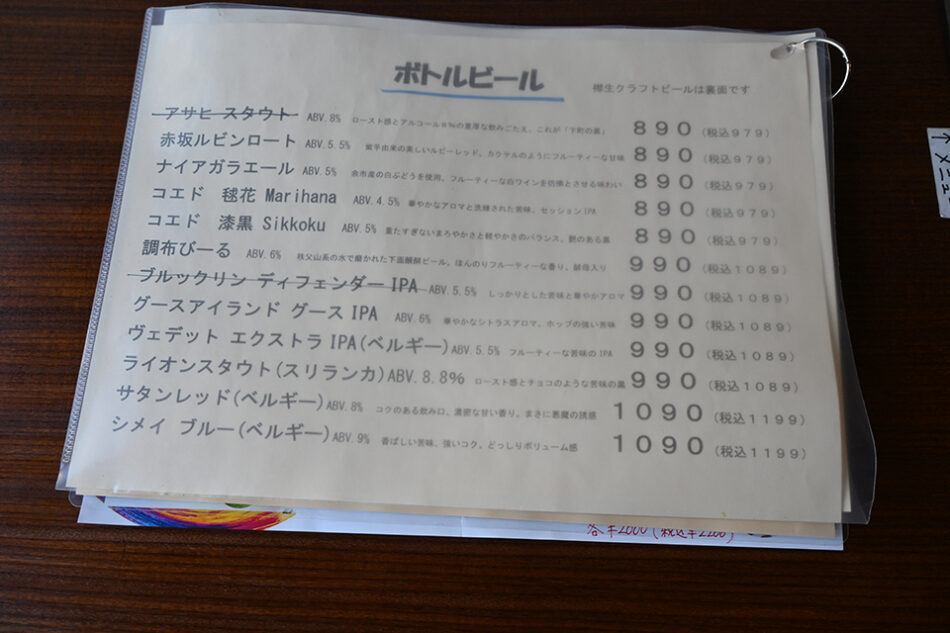 ボトルビール 樽生クラフトビールは裏面です
アサヒ スタウト ABV.8% ロースト感とアルコール8%の重厚な飲みごたえ、これが「下町の黒」 890 (税込979)
赤坂ルビンロート ABV.5.5% 紫芋由来の美しいルビーレッド、カクテルのようにフルーティーな甘味 890 (税込979)
ナイアガラエール ABV.5% 余市産の白ぶどうを使用、フルーティーな白ワインを彷彿とさせる味わい 890 (税込979)
コエド 毬花 Marihana ABV.4.5% 華やかなアロマと洗練された苦味、セッションIPA 890 (税込979)
コエド 漆黒 Sikkoku ABV.5% 重たすぎないまろやかさと軽やかさのバランス、艶のある黒 890 (税込979)
調布びーる ABV.6% 秩父山系の水で磨かれた下面醗酵ビール、ほんのりフルーティーな香り、酵母入り 990 (税込1089)
ブルックリン ディフェンダー IPA ABV.5.5% しっかりとした苦味と華やかアロマ 990 (税込1089)
グースアイランド グース IPA ABV.6% 華やかなシトラスアロマ、ホップの強い苦味 990 (税込1089)
ヴェデット エクストラ IPA(ベルギー) ABV.5.5% フルーティーな苦味のIPA 990 (税込1089)
ライオンスタウト(スリランカ) ABV.8.8% ロースト感とチョコのような苦味の黒 990 (税込1089)
サタンレッド(ベルギー) ABV.8% コクのある飲み口、濃密な甘い香り、まさに悪魔の誘惑 1090 (税込1199)
シメイ ブルー(ベルギー) ABV.9% 香ばしい苦味、強いコク、どっしりボリューム感 1090 (税込1199)
各¥2000(税込¥2200)